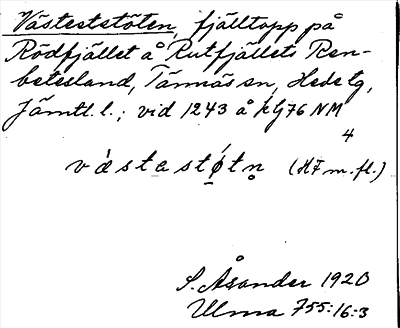 Västeststöten, fjälltopp på
Rödfjället å Rutfjällets Ren-
betesland, Tännäs sn, Hede tg,
Jämtl. l.; vid 1243 å kG76 NM
4
væ´stastø´tn̥ (HF m. fl.)
S. Åsander 1920
Ulma 755:16:3